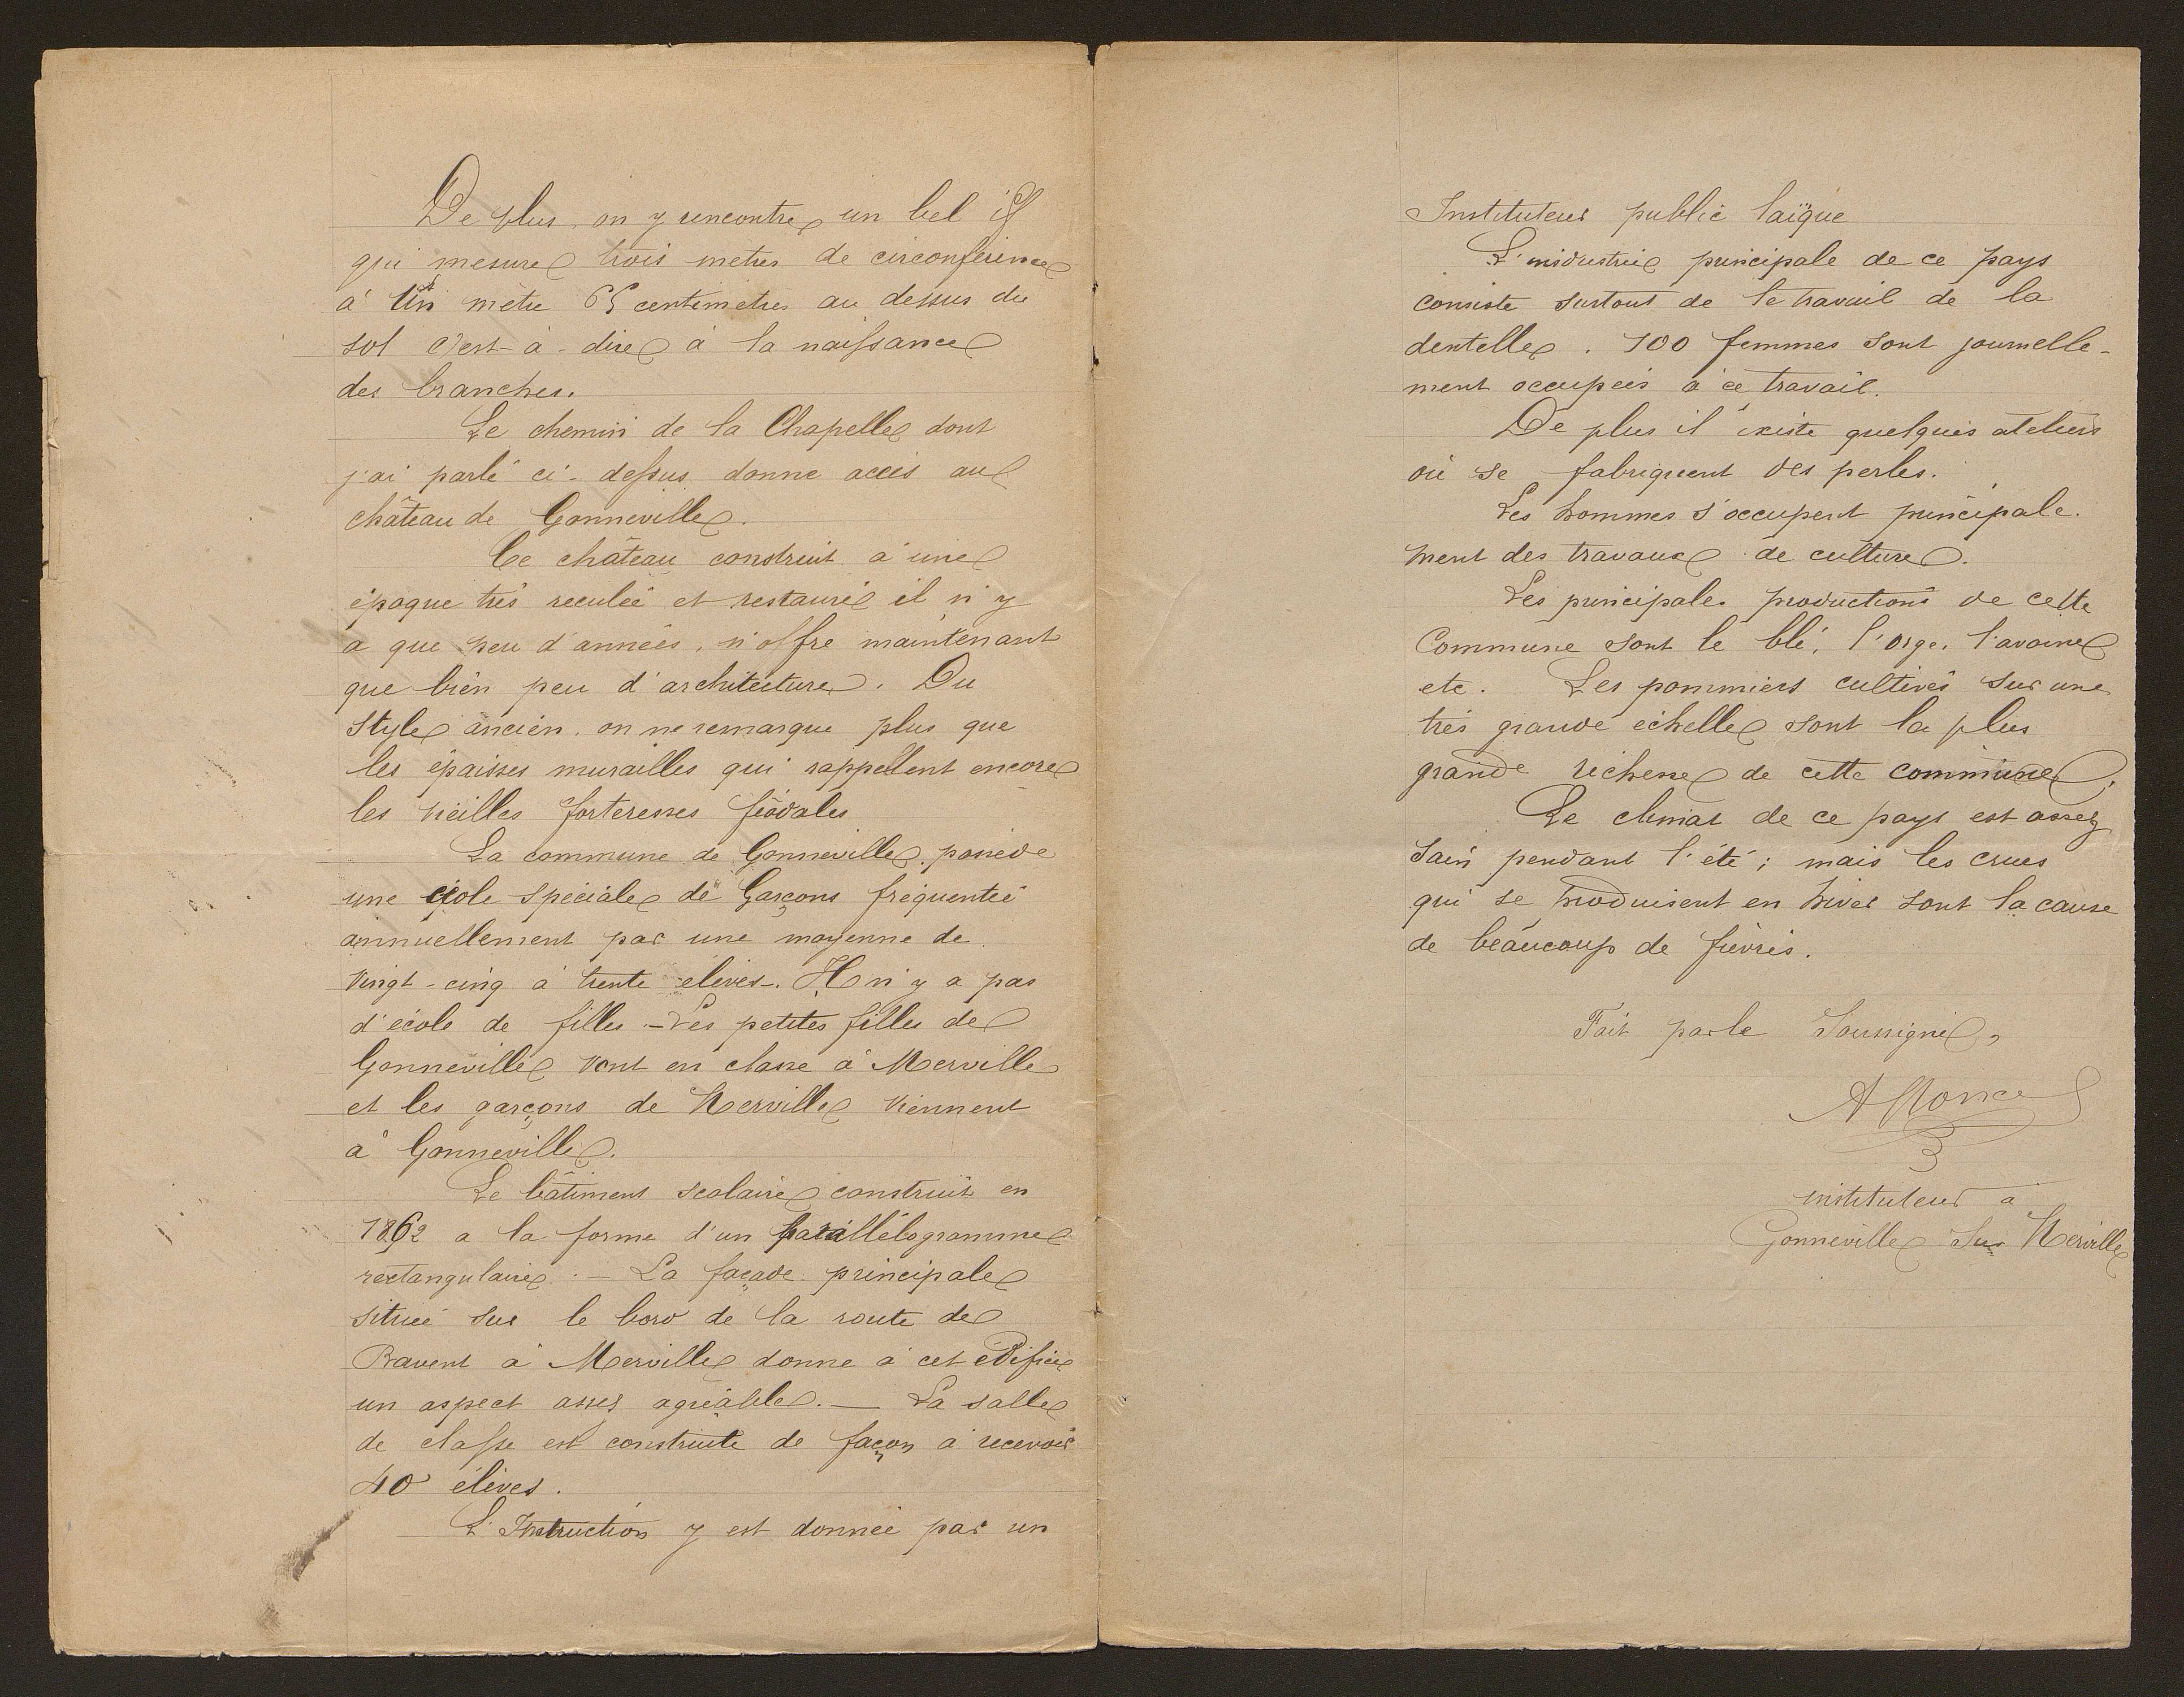 De plus, on y rencontre un bel if
qui mesure trois mètres de circonférence
à Un mètre 65 centimètres au dessus du
sol c'est-à-dire à la naissance
des branches.
Le chemin de la Chapelle dont
j'ai parlé ci-dessus donne accès au
château de Gonneville.
Ce château construit à une
époque très reculée et restauré il n'y
a que peu d'années, n'offre maintenant
que bien peu d'architecture. Du
style ancien, on ne remarque plus que
les épaisses murailles qui rappellent encore
les vieilles forteresses féodales
La commune de Gonneville possède
une école spéciale de Garçons fréquentée
annuellement par une moyenne de
vingt-cinq à trente élèves. Il n'y a pas
d'école de filles - Les petites filles de
Gonneville vont en classe à Merville
et les garçons de Merville viennent
à Gonneville.
Le bâtiment scolaire construit en
1862 a la forme d'un parallélogramme
rectangulaire. - La façade principale
située sur le bord de la route de
Bavent à Merville donne à cet édifice
un aspect assez agréable. - La salle
de classe est construite de façon à recevoir
40 élèves.
L'Instruction y est donnée par un
Instituteur public laïque
L'industrie principale de ce pays
consiste surtout de le travail de la
dentelle. 100 femmes sont journelle-
ment occupées à ce travail.
De plus il existe quelques ateliers
où se fabriquent des perles.
Les hommes s'occupent principale-
ment des travaux de culture.
Les principales productions de cette
Commune sont le blé, l'orge, l'avoine
etc. Les pommiers cultivés sur une
très grande échelle sont la plus
grande richesse de cette commune.
Le climat de ce pays est assez
sain pendant l'été; mais les crues
qui se produisent en hiver sont la cause
de beaucoup de fièvres.
Fait par le Soussigné,
instituteur à
Gonneville Sur Merville